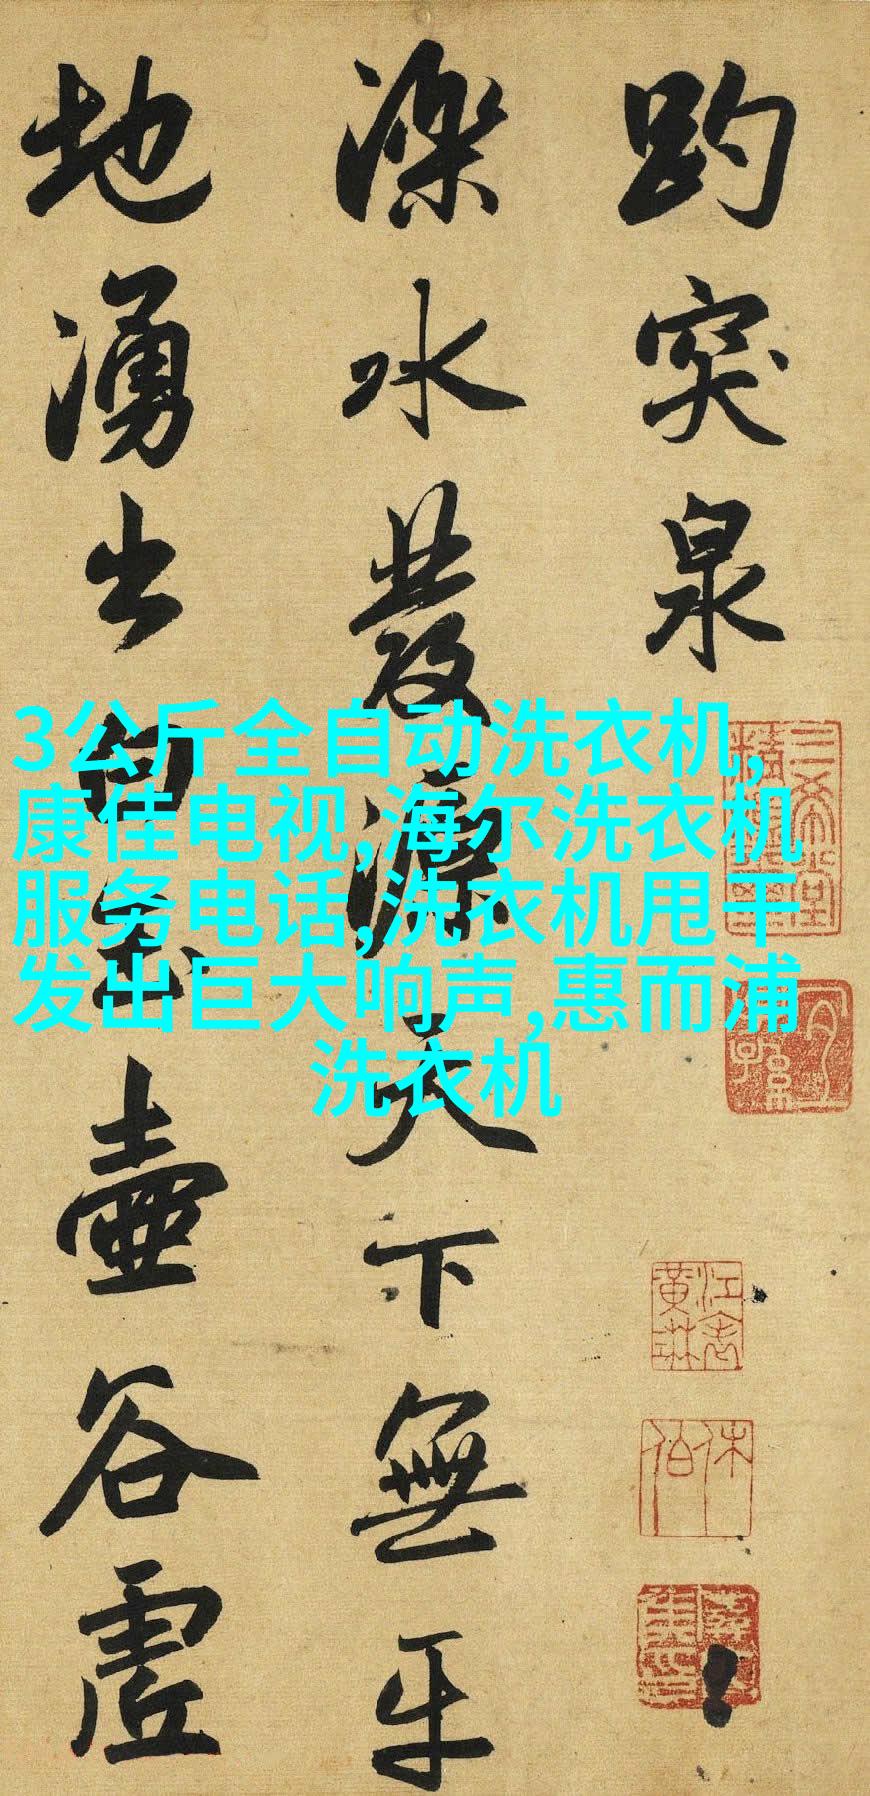 趵突泉
濼水發源天下無平
地湧出白玉壺谷虛
3公斤全自动洗衣机,
康佳电视,海尔洗衣机
服务电话,洗衣机甩干
发出巨大响声,惠而浦
洗衣机
三希堂
精鑑璽
宜子孫
休伯